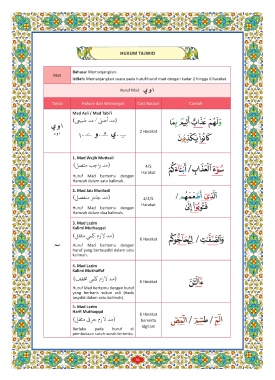 HUKUM TAJWID
Mad
Bahasa: Memanjangkan.
Istilah: Memanjangkan suara pada huruf-huruf mad dengan kadar 2 hingga 6 harakat.
Huruf Mad و ي ا
Tanda
Hukum dan Keterangan
Cara Bacaan
Contoh
Mad Asli / Mad Tabi'i
(مد أصلي / مد طبيعي)
2 Harakat
وَلَهُمْ عَذَابٌ أَلِيمٌ بِمَا
كَانُوا يَكْذِبُونَ
1. Mad Wajib Muttasil
(مد واجب متصل)
Huruf Mad bertemu dengan
Hamzah dalam satu kalimah.
4/5
Harakat
2. Mad Jaiz Munfasil
(مد جائز منفصل)
Huruf Mad bertemu dengan
Hamzah dalam dua kalimah.
2/4/5
Harakat
3. Mad Lazim
Kalimi Muthaqqal
(مد لازم كلمي مثقل)
Huruf Mad bertemu dengan
huruf yang bertasydid dalam satu
kalimah.
6 Harakat
4. Mad Lazim
Kalimi Mukhaffaf
(مد لازم كلمي مخفف)
Huruf Mad bertemu dengan huruf
yang berbaris sukun asli (tiada
tasydid dalam satu kalimah).
6 Harakat
5. Mad Lazim
Harfi Muthaqqal
(مد لازم حرفي مثقل)
Berlaku pada huruf di
permulaan surah-surah tertentu.
6 Harakat
berserta
idgham
الٓمٓ / طسٓمٓ / الٓمٓصٓ